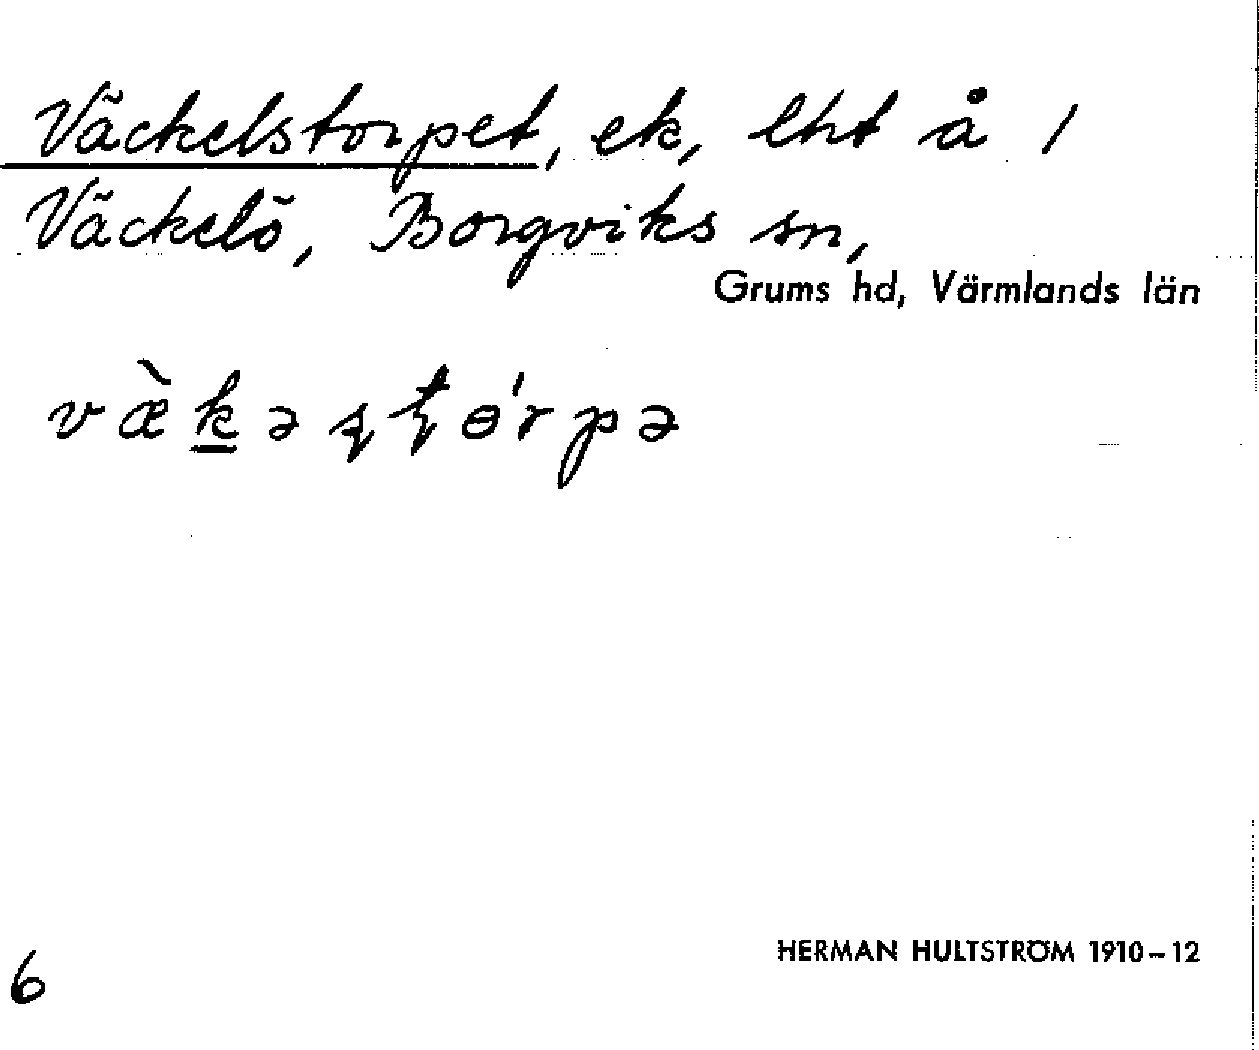 Väckelstorpet, ek, lht å 1
Väckelö, Borgviks sn,
Grums hd, Värmlands län
HERMAN HULTSTRÖM 1910–12
6